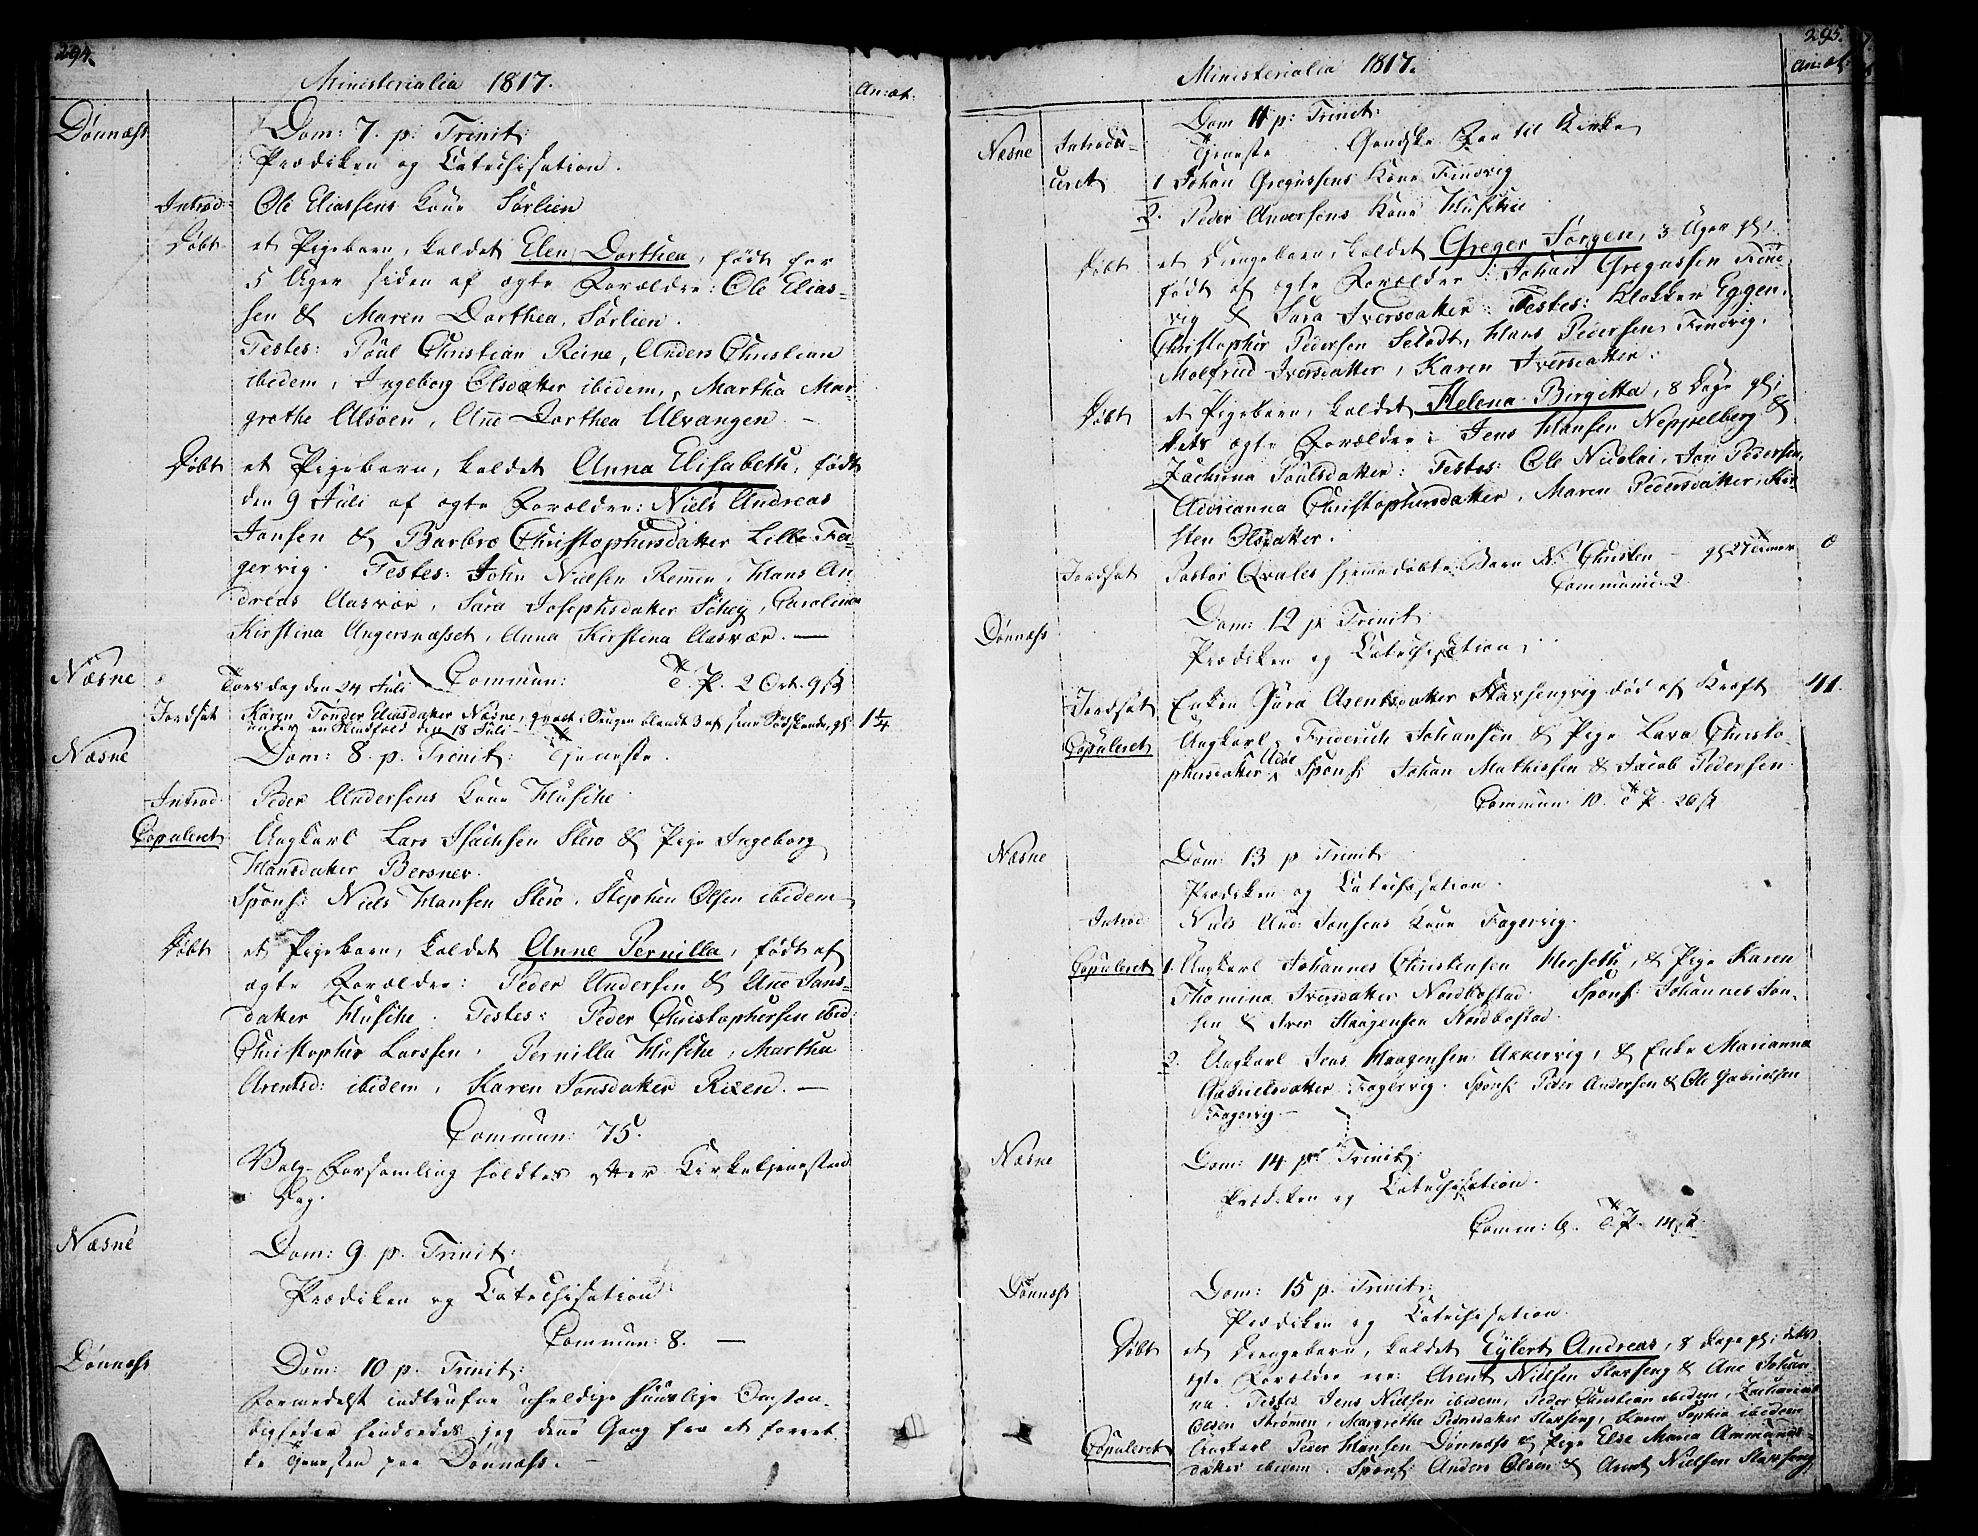 294.
Ministerialia 1817.
An: æt:
Dønnæss
Dom: 7. p: Trinit:
Prædiken og Catechisation.
Introd: Ole Eliassens Kone Sørlien
Døbt et Pigebarn, kaldet Elen Dorthea, født for
5 Uger siden af ægte Forældre: Ole Elias-
sen & Maren Dorthea, Sørlien.
Testes: Poul Christian Reine, Anders Christian
ibidem, Ingeborg Olsdatter ibidem, Martha Mar-
grethe Alsöen, Ane Dorthea Ulvangen. —
Døbt et Pigebarn, kaldet Anna Elisabeth, født
den 9 Juli af ægte Forældre: Niels Andreas
Jonsen & Barbro Christophersdatter Lille Fa-
gervig. Testes: John Nielsen Remmen, Hans An
dreas Aasvær, Sara Josephsdatter Schey, Carolina
Kirstina Angersnæsset, Anna Kirstina Aasvær. —
Næsne
Torsdag den 24 Juli Commun: T. P. 2 Ort. 9 ß
Jordfæt Karen Tønder Eliasdatter Næsne, qvalt i Sengen blandt 3 af sine Sødskende, gl: 1 1/4
under en Skindfeld den 18 Juli —
Næsne
Dom: 8. p. Trinit: Tjeneste.
Introd: Peder Andersens Kone Husche.
Copuleret Ungkarl Lars Isachsen Slerø & Pige Ingeborg
Hansdatter Bersner.
Spons: Niels Hansen Slerø. Stephen Olsen ibidem
Døbt et Pigebarn, kaldet Anne Pernilla, født af
ægte Forældre: Peder Andersen & Ane Jans-
datter Husche. Testes: Peder Christophersen ibid:
Christopher Larssen, Pernilla Husche, Martha
Arentsd: ibidem, Karen Jonsdatter Risen. —
Commun: 75.
Valg-Forsamling holdtes efter Kirketjenesten d.
Dag.
Næsne
Dom: 9. p. Trinit:
Prædiken og Catechisation.
Commun: 8. —
Dønnæss
Dom: 10 p. Trinit:
Formedelst indtrufne uheldige huuslige Omstæn-
digheder hindredes jeg denne Gang fra at forret-
te Tjenesten paa Dønnæss. —
295.
Ministerialia 1817.
An: æt:
Dom 11 p: Trinit:
Næsne Introdu-
ceret
Tjeneste Gandske Faa til Kirke
1 Johan Gregussens Kone Finnvig
2. Peder Andersens Kone Husche
Døbt et Drengebarn, kaldet Greger Jørgen, 3 Uger gl:
født af ægte Forældre: Johan Gregussen Finn-
vig & Sara Iversdatter. Testes: Klokker Eggen.
Christopher Pedersen Selodt, Hans Pedersen Finnvig.
Molfrid Iversdatter, Karen Iversdatter.
Døbt et Pigebarn, kaldet Helena Birgitta, 8 Dage gl;
dets ægte Forældre: Jens Hansen Neppelberg &
Zachrina Poulsdatter: Testes: Ole Nicolai, Jon Pedersen,
Adrianna Christophersdatter, Maren Pedersdatter, Kir-
sten Olsdatter.
Jordfæt Pastor Qvales hjemmedøbte Barn N: Christen — gl 27 Timer 0
Communic: 2
Dønnæss
Dom: 12 p. Trinit
Prædiken og Catechisation.
Jordfæt Enken Sara Arentsdatter Slapsengvig død af Kræft 41.
Copuleret Ungkarl Friderich Johansen & Pige Lava Christo-
phersdatter Aldøe Spons: Johan Mathissen & Jacob Pedersen
Commun: 10. T. P. 20 ß
Næsne
Dom: 13 p Trinit
Prædiken og Catechisation.
Introd: Niels And: Jonsens Kone Fagervig.
Copuleret 1. Ungkarl Johannes Christensen Herseth, & Pige Karen
Thomina Iversdatter Nordbostad. Spons: Johannes Jon-
sen & Iver Haagensen Nordbostad.
2. Ungkarl Jens Haagensen Akkervig, & Enke Marianna
Gabrielsdatter Fagervig. Spons: Peder Andersen & Ole Gabrielsen
Fagervig —
Næsne
Dom: 14. p. Trinit:
Prædiken og Catechisation.
Comm: 6. T. P. 14 ß
Dønnæss
Dom: 15 p. Trinit:
Prædiken og Catechisation.
Døbt et Drengebarn, kaldet Eylert Andreas, 8 Dage gl; dets
ægte Forældre ere: Arent Nielsen Slapseng & Ane Johan-
na. Testes Jens Nielsen ibidem, Peder Christian ibidem, Zacharias
Olsen Strømen, Margrethe Pedersdatter Slapseng, Anna Sophia ibidem
Copuleret Ungkarl Peder Hansen Dønnæss & Pige Else Maria Ammunds-
datter ibidem. Spons: Anders Olsen & Arent Nielsen Slapseng